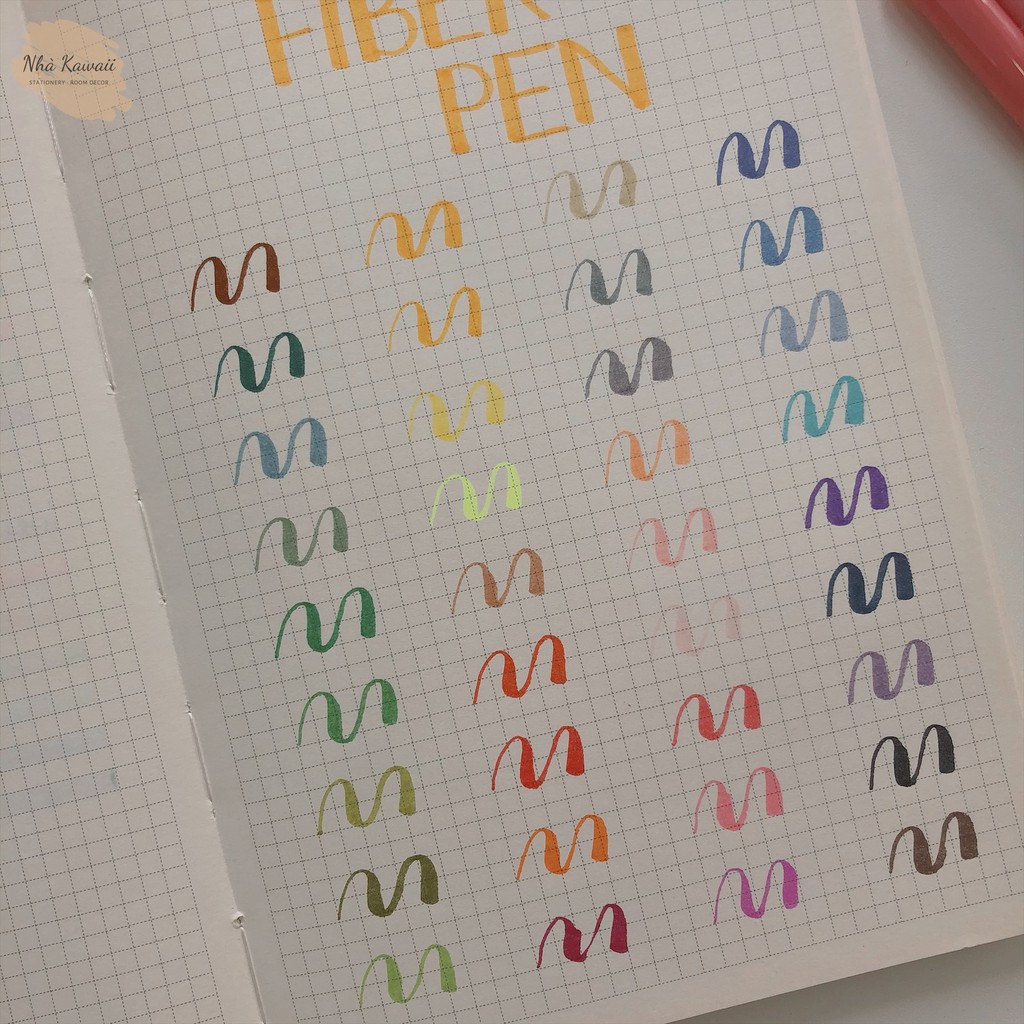 Nhà Kawaii
STATIONERY - ROOM DECOR
FIBER
PEN